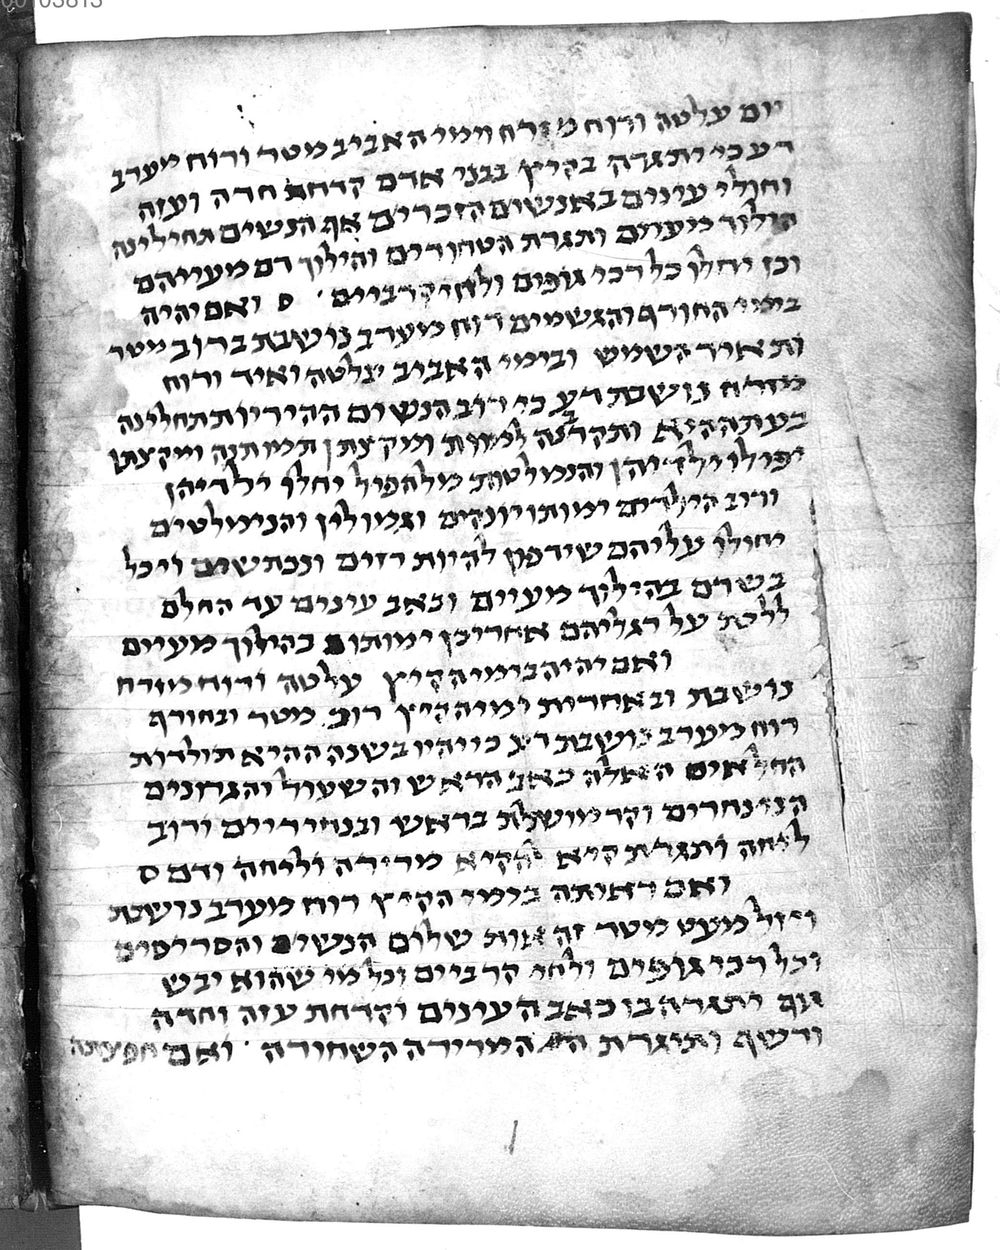 00103813
יום עלטה ורוח מזרח וימי האביב מטר ורוח מערב
דע כי יתגרה בקיץ בבני אדם קדחת חדה ועזה
וחולי עינים באנשים הזכרים אף הנשים תחילינה
הילוך מעים ותגרת הטחורים והילוך דם מעייהם
וכן יחלו כל רכי גופים ולחי קרביים ׳ ס ואם יהיה
בימי החורף והגשמים רוח מערב נושבת ברוב מטר
ותאיר השמש ובימי האביב עלטה ואיד ורוח
מזרח נושבת דע כי רוב הנשים ההריות תחלינה
בעת ההיא ותקרבנה למוות ומקצתן תמותנה ומקצתן
יפילו ילדיהן והנמלטות מלהפיל יחלו ילדיהן
ורוב הילדים ימותו יונקים וגמולין והנימלטים
יחולו עליהם שידפון להיות רזים ונכחשים ויכל
בשרם בהילוך מעיים וכאב עינים עד החלם
ללכת על רגליהם אחרי כן ימותו בהילוך מעיים
ואם יהיה בימי הקיץ עלטה ורוח מזרח
נושבת ובאחרית ימי הקיץ רוב מטר ובחורף
רוח מערב נושבת דע כי יהיו בשנה ההיא תולדות
החלאים האלה כאב הראש והשעול והגרונים
הנינחרים וקר מושלת בראש ובנחיריים ורוב
ליחה ותגרת קיא להקיא מרירה וליחה ודם ס
ואם ראיתה בימי הקיץ רוח מערב נושבת
ויזל מעט מטר זה אות שלום הנשים והסריסים
וכל רכי גופים ולחי קרביים וכל מי שהוא יבש
גוף יתגרה בו כאב העינים וקדחת עזה וחדה
ורשף ותגרת המרירה השחורה ׳ ואם